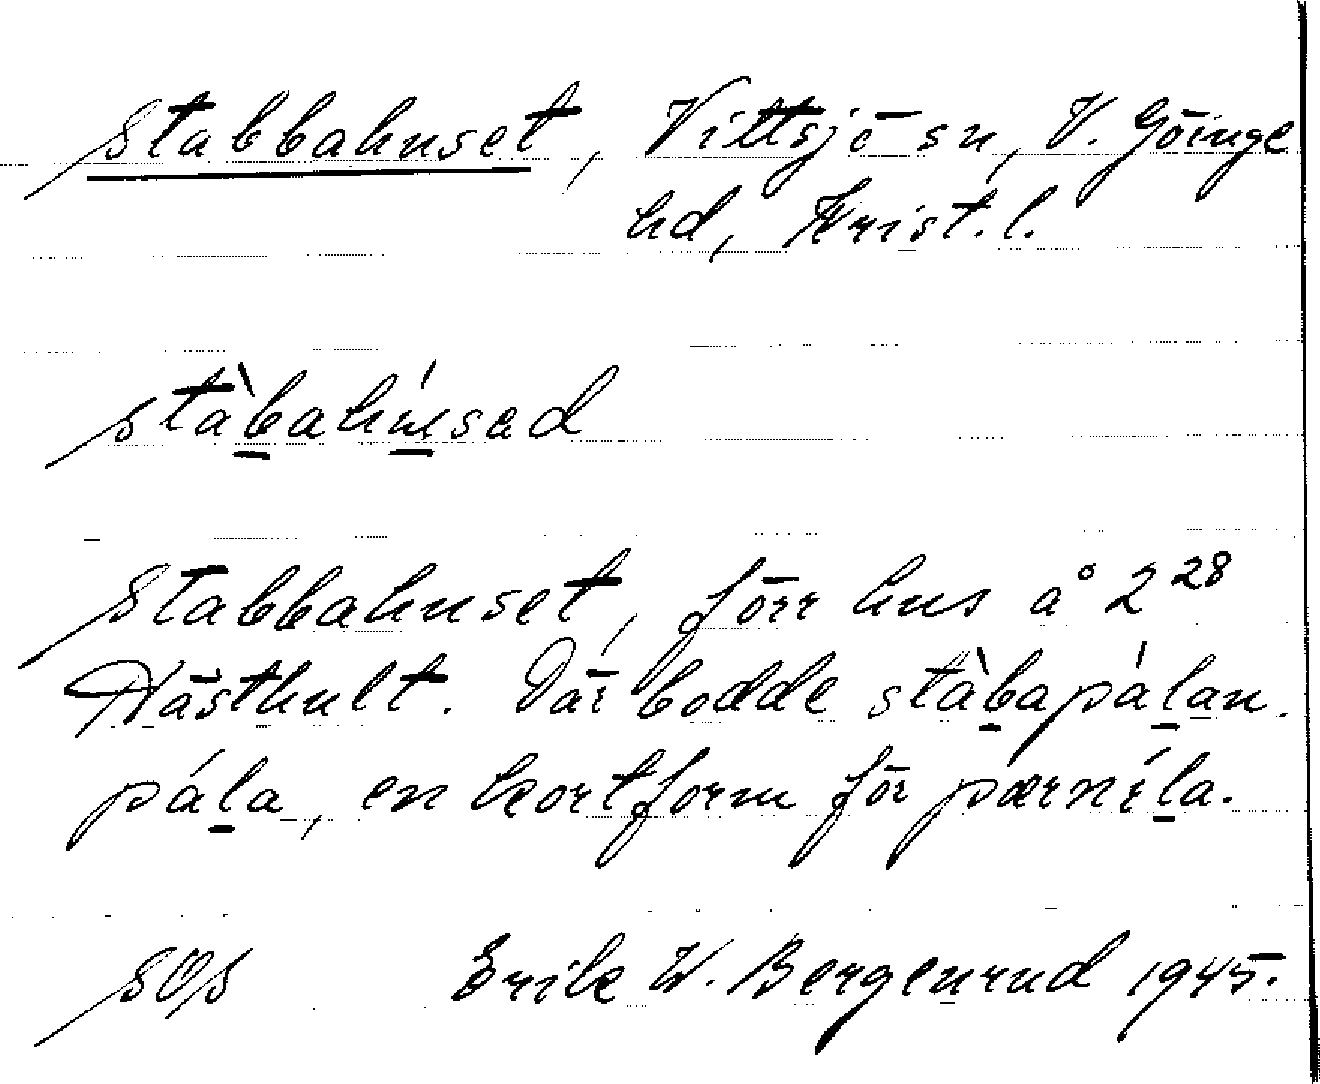 Stabbahuset, Vittsjö sn, V. Göinge
hd, Krist. l.
stàbahúsad
Stabbahuset, förr hus å 2²⁸
Hästhult. Där bodde stàbapálan.
pála, en kortform för pærníla.
SOS Erik W. Bergenrud 1945.